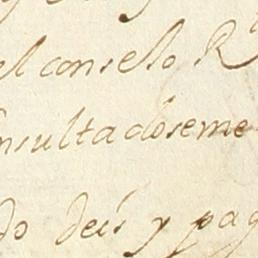 el conselo R
nsultadoseme
do deis y pag